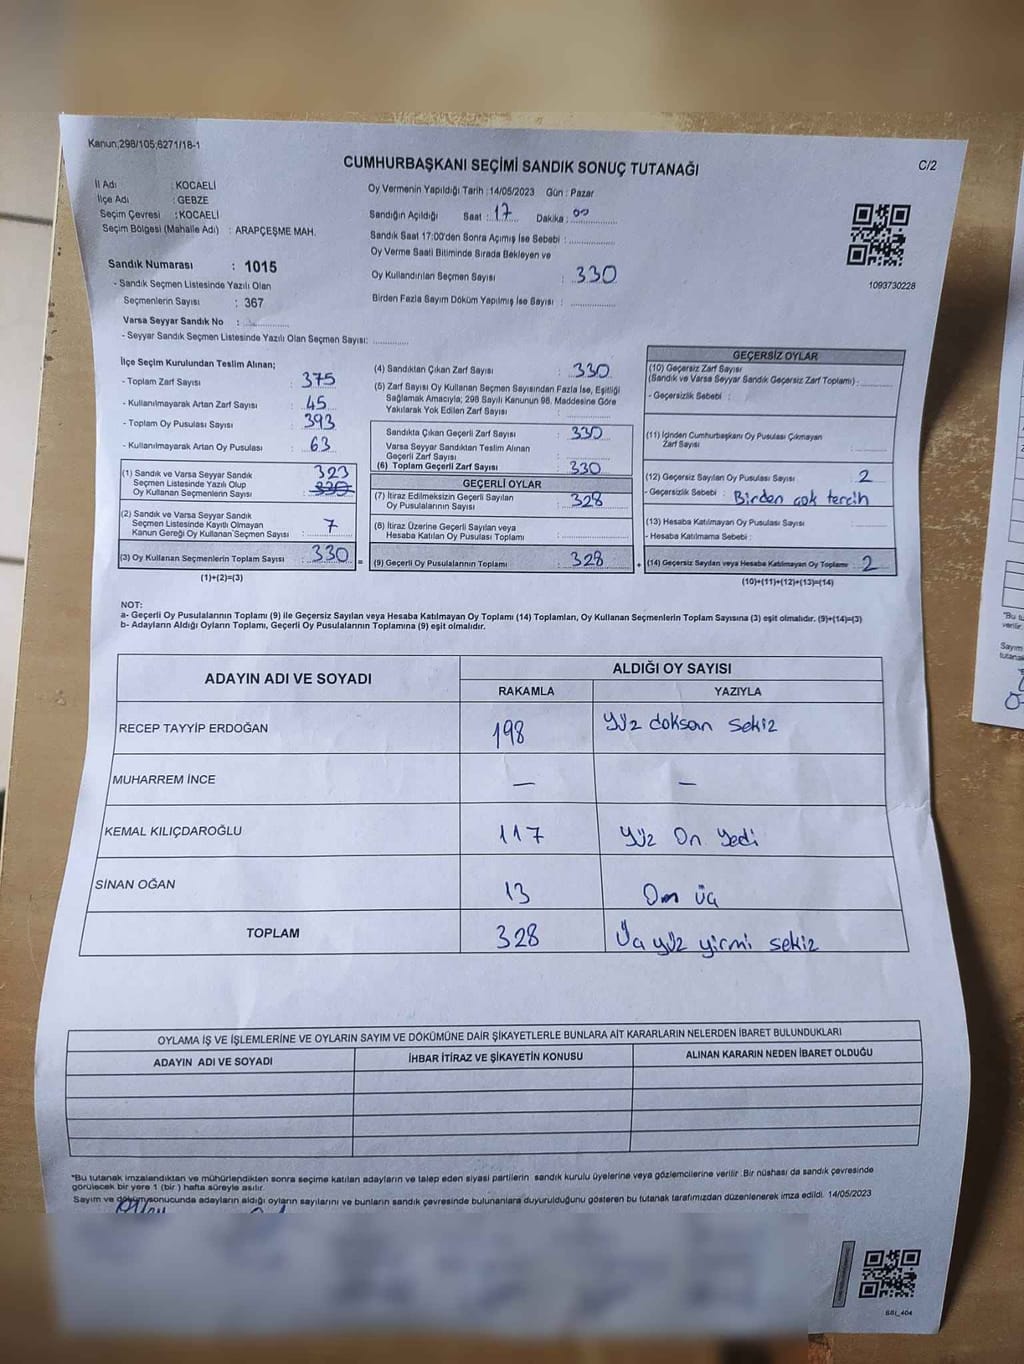 Kanun;298/105,6271/18-1
C/2
CUMHURBAŞKANI SEÇİMİ SANDIK SONUÇ TUTANAĞI
İl Adı : KOCAELİ
İlçe Adı : GEBZE
Seçim Çevresi : KOCAELİ
Seçim Bölgesi (Mahalle Adı) : ARAPÇEŞME MAH.
Sandık Numarası : 1015
- Sandık Seçmen Listesinde Yazılı Olan
Seçmenlerin Sayısı : 367
Varsa Seyyar Sandık No :
- Seyyar Sandık Seçmen Listesinde Yazılı Olan Seçmen Sayısı:
Oy Vermenin Yapıldığı Tarih :14/05/2023 Gün : Pazar
Sandığın Açıldığı Saat : 17 Dakika : 00
Sandık Saat 17:00'den Sonra Açımış İse Sebebi :
Oy Verme Saati Bitiminde Sırada Bekleyen ve
Oy Kullandırılan Seçmen Sayısı : 330
Birden Fazla Sayım Döküm Yapılmış İse Sayısı :
1093730228
İlçe Seçim Kurulundan Teslim Alınan;
- Toplam Zarf Sayısı : 375
- Kullanılmayarak Artan Zarf Sayısı : 45
- Toplam Oy Pusulası Sayısı : 393
- Kullanılmayarak Artan Oy Pusulası : 63
(1) Sandık ve Varsa Seyyar Sandık 323
Seçmen Listesinde Yazılı Olup
Oy Kullanan Seçmenlerin Sayısı : 330
(2) Sandık ve Varsa Seyyar Sandık
Seçmen Listesinde Kayıtlı Olmayan
Kanun Gereği Oy Kullanan Seçmen Sayısı : 7
(3) Oy Kullanan Seçmenlerin Toplam Sayısı : 330
(1)+(2)=(3)
(4) Sandıktan Çıkan Zarf Sayısı : 330
(5) Zarf Sayısı Oy Kullanan Seçmen Sayısından Fazla İse, Eşitliği
Sağlamak Amacıyla; 298 Sayılı Kanunun 98. Maddesine Göre
Yakılarak Yok Edilen Zarf Sayısı :
Sandıkta Çıkan Geçerli Zarf Sayısı : 330
Varsa Seyyar Sandıktan Teslim Alınan
Geçerli Zarf Sayısı :
(6) Toplam Geçerli Zarf Sayısı : 330
GEÇERLİ OYLAR
(7) İtiraz Edilmeksizin Geçerli Sayılan
Oy Pusulalarının Sayısı : 328
(8) İtiraz Üzerine Geçerli Sayılan veya
Hesaba Katılan Oy Pusulası Toplamı :
= (9) Geçerli Oy Pusulalarının Toplamı : 328
GEÇERSİZ OYLAR
(10) Geçersiz Zarf Sayısı
(Sandık ve Varsa Seyyar Sandık Geçersiz Zarf Toplamı) :
- Geçersizlik Sebebi :
(11) İçinden Cumhurbaşkanı Oy Pusulası Çıkmayan
Zarf Sayısı :
(12) Geçersiz Sayılan Oy Pusulası Sayısı : 2
- Geçersizlik Sebebi : Birden çok tercih
(13) Hesaba Katılmayan Oy Pusulası Sayısı :
- Hesaba Katılmama Sebebi :
+ (14) Geçersiz Sayılan veya Hesaba Katılmayan Oy Toplamı : 2
(10)+(11)+(12)+(13)=(14)
NOT:
a- Geçerli Oy Pusulalarının Toplamı (9) ile Geçersiz Sayılan veya Hesaba Katılmayan Oy Toplamı (14) Toplamları, Oy Kullanan Seçmenlerin Toplam Sayısına (3) eşit olmalıdır. (9)+(14)=(3)
b- Adayların Aldığı Oyların Toplamı, Geçerli Oy Pusulalarının Toplamına (9) eşit olmalıdır.
ADAYIN ADI VE SOYADI ALDIĞI OY SAYISI
RAKAMLA YAZIYLA
RECEP TAYYİP ERDOĞAN 198 Yüz doksan sekiz
MUHARREM İNCE — —
KEMAL KILIÇDAROĞLU 117 Yüz On Yedi
SİNAN OĞAN 13 On üç
TOPLAM 328 Üç yüz yirmi sekiz
OYLAMA İŞ VE İŞLEMLERİNE VE OYLARIN SAYIM VE DÖKÜMÜNE DAİR ŞİKAYETLERLE BUNLARA AİT KARARLARIN NELERDEN İBARET BULUNDUKLARI
ADAYIN ADI VE SOYADI İHBAR İTİRAZ VE ŞİKAYETİN KONUSU ALINAN KARARIN NEDEN İBARET OLDUĞU
*Bu tutanak imzalandıktan ve mühürlendikten sonra seçime katılan adayların ve talep eden siyasi partilerin sandık kurulu üyelerine veya gözlemcilerine verilir. Bir nüshası da sandık çevresinde
görülecek bir yere 1 (bir) hafta süreyle asılır.
Sayım ve dökümü sonucunda adayların aldığı oyların sayılarını ve bunların sandık çevresinde bulunanlara duyurulduğunu gösteren bu tutanak tarafımızdan düzenlenerek imza edildi. 14/05/2023
SSI_404